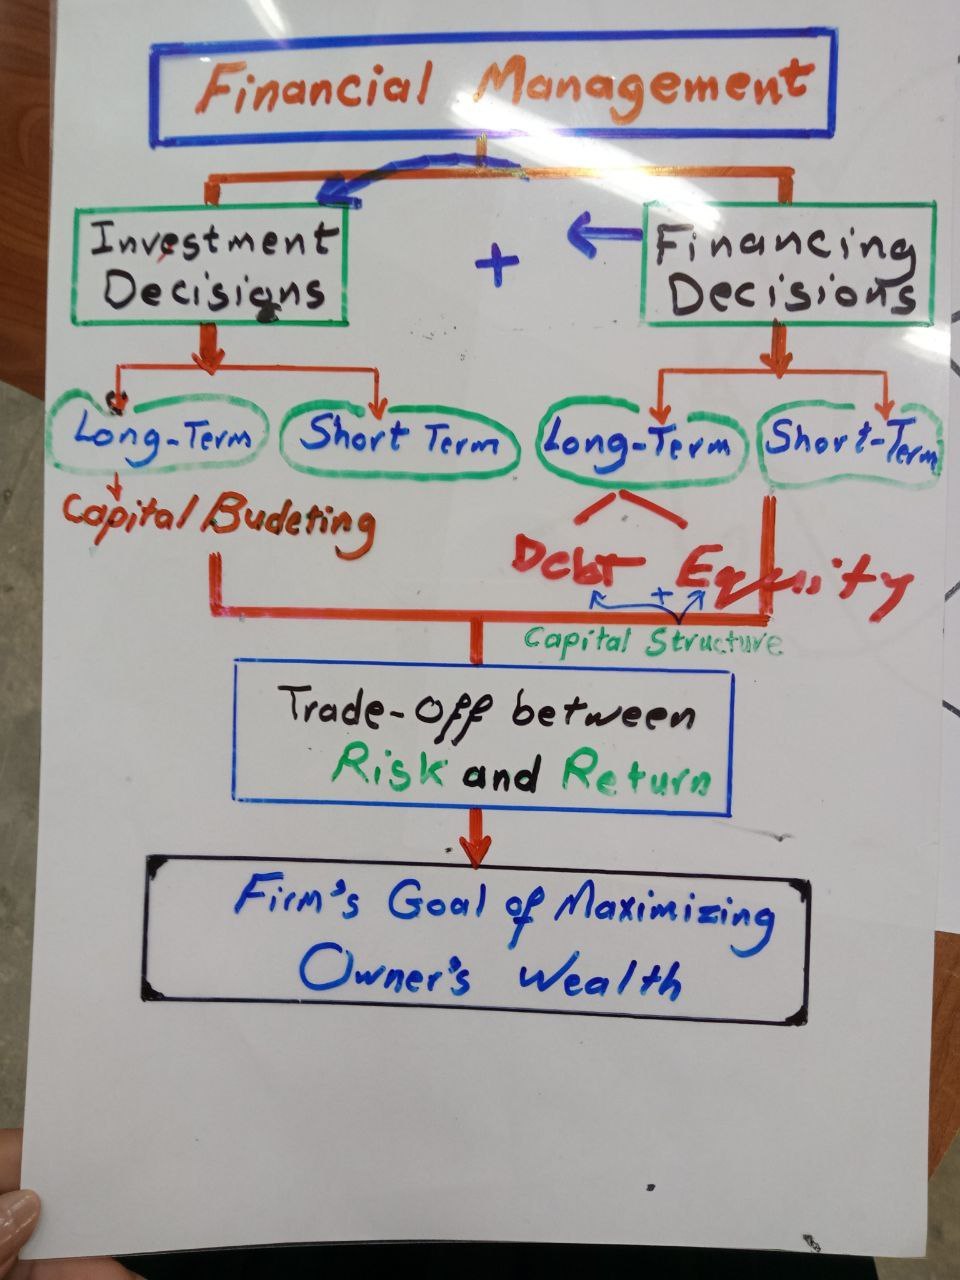 Financial Management
Investment
Decisions
+
Financing
Decisions
Long-Term
Short Term
Long-Term
Short-Term
Capital Budeting
Debt Equity
+
Capital Structure
Trade-Off between
Risk and Return
Firm's Goal of Maximizing
Owner's Wealth